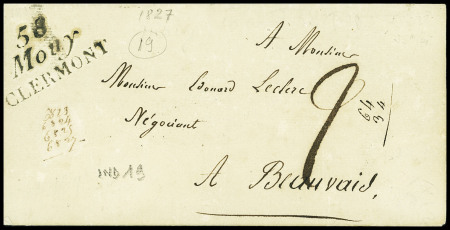 1827
19
58
Mouy
CLERMONT
A Monsieur
Monsieur Edouard Leclerc
Négociant
A Beauvais,
2
64
34
IND 19